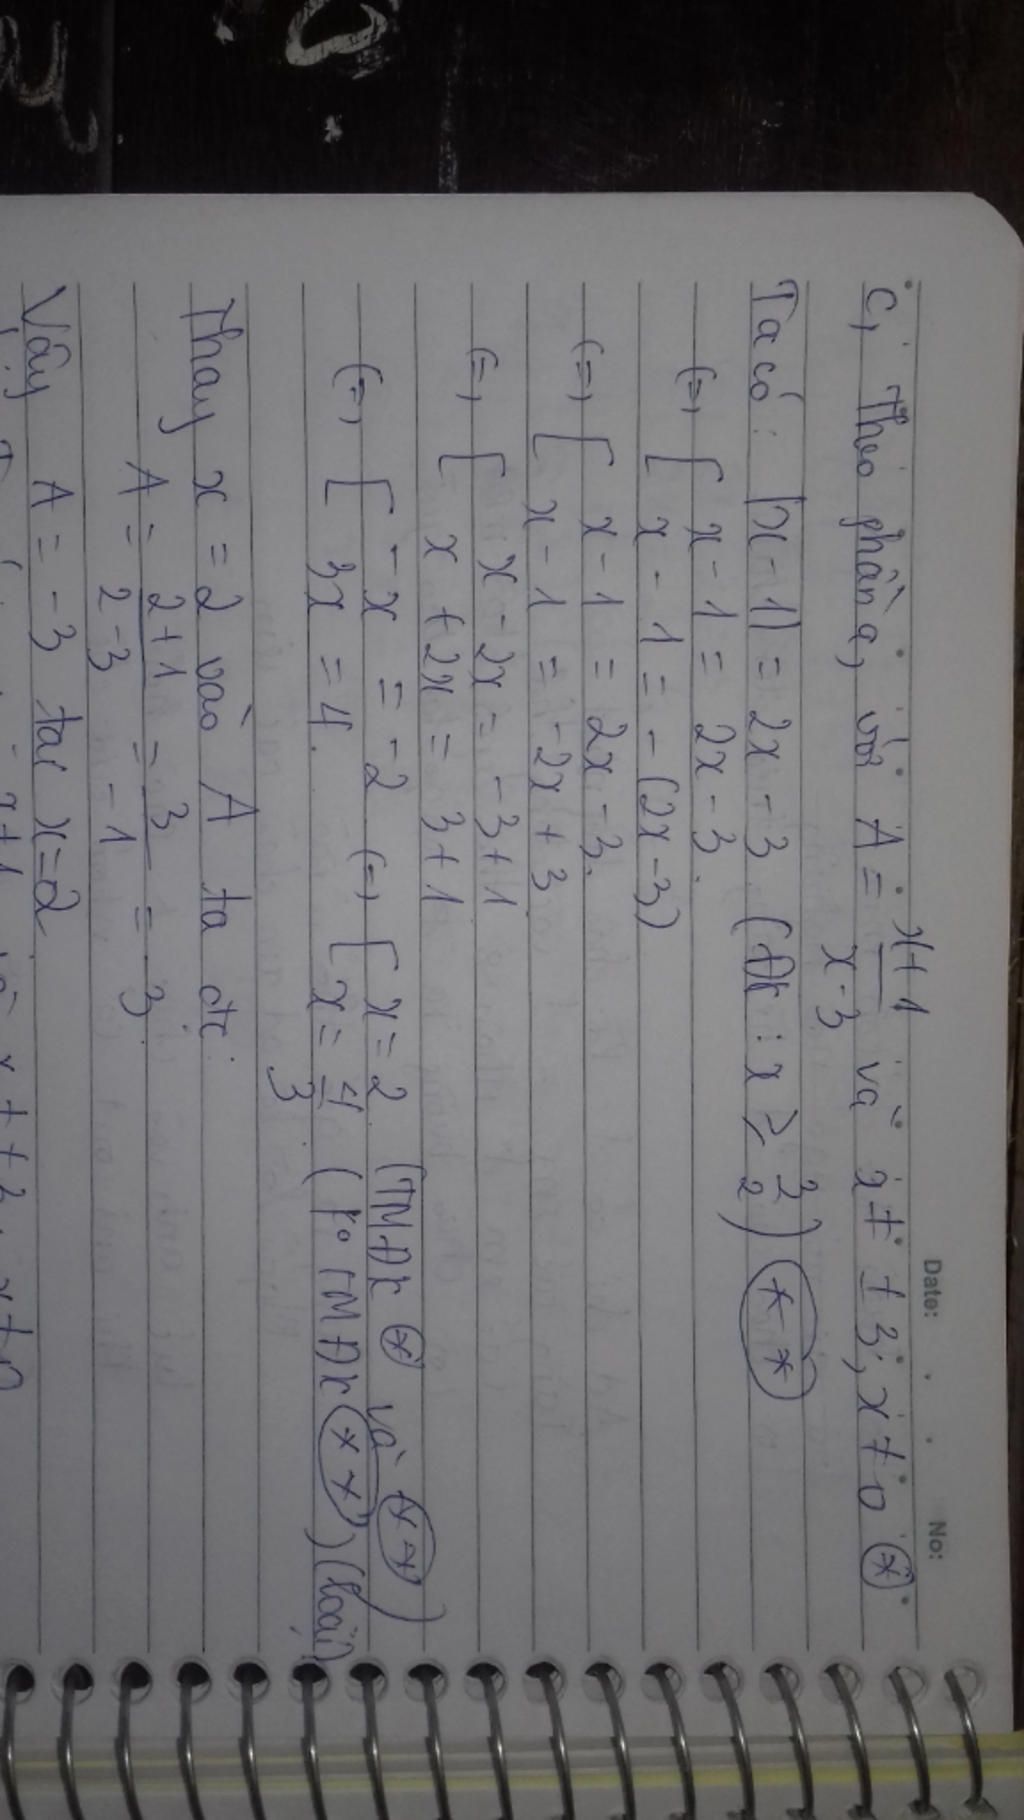 Date: No:
c, Theo phần a, với A = x+1/x-3 và x ≠ ±3; x ≠ 0 (*)
Ta có: |x-1| = 2x-3 (ĐK: x ≥ 3/2) (**)
(=) [ x-1 = 2x-3
[ x-1 = -(2x-3)
(=) [ x-1 = 2x-3
[ x-1 = -2x+3
(=) [ x-2x = -3+1
[ x+2x = 3+1
(=) [ -x = -2 (=) [ x = 2 (TMĐK (*) và (**))
[ 3x = 4 [ x = 4/3 (ko TMĐK (**)) (loại)
Thay x = 2 vào A ta đc:
A = 2+1/2-3 = 3/-1 = -3
Vậy A = -3 tại x=2